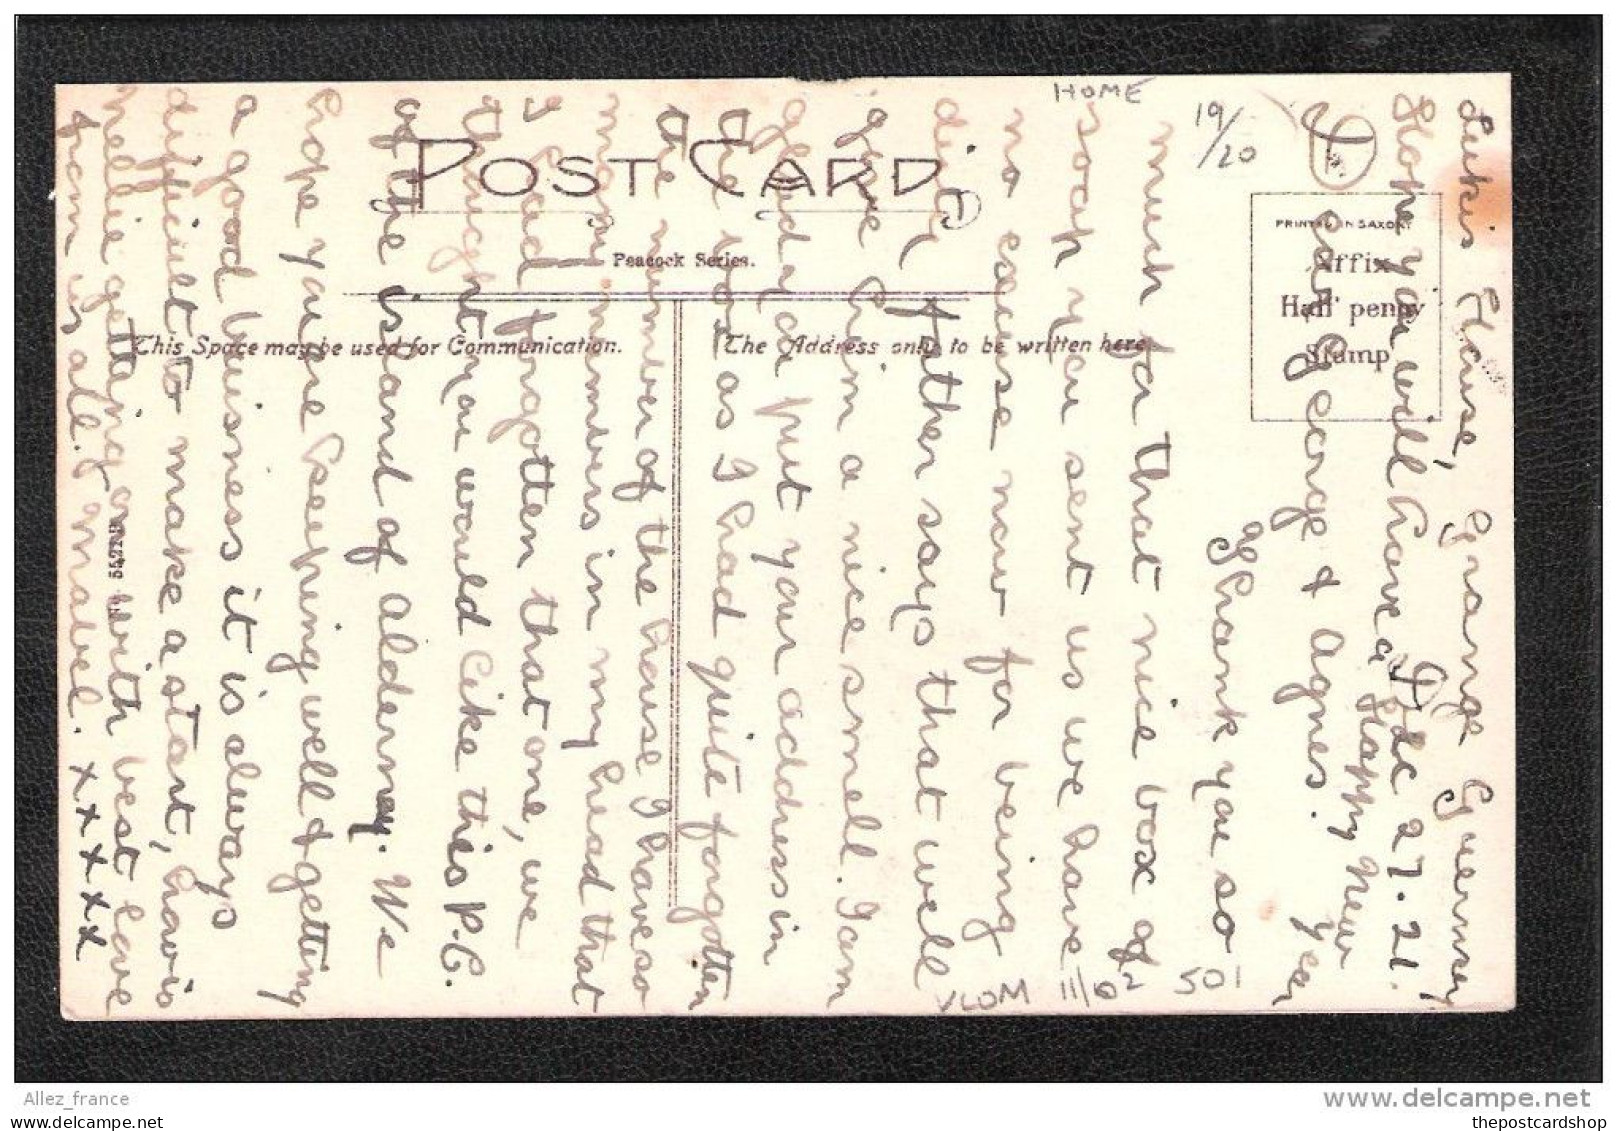 Lukis House, Grange Guernsey
Dec 27. 21.
Hope you will have a Happy New Year
Dear George & Agnes.
Thank you so
much for that nice box of
soap you sent us we have
no excuse now for being
dirty, Father says that well
give him a nice smell. I am
glad you put your address in
the box as I had quite forgotten
the number of the house I have so
many numbers in my head that
I had forgotten that one, we
thought you would like this P.C.
of the island of Alderney. We
hope you are keeping well & getting
a good buisness it is always
difficult to make a start, how is
nellie getting on with best love
from us all. Mabel. x x x x x
POST CARD
Peacock Series.
This Space may be used for Communication.
The Address only to be written here.
PRINTED IN SAXONY
Affix
Half penny
Stamp
HOME
19/20
11/02
501
Allez_france
www.delcampe.net
thepostcardshop